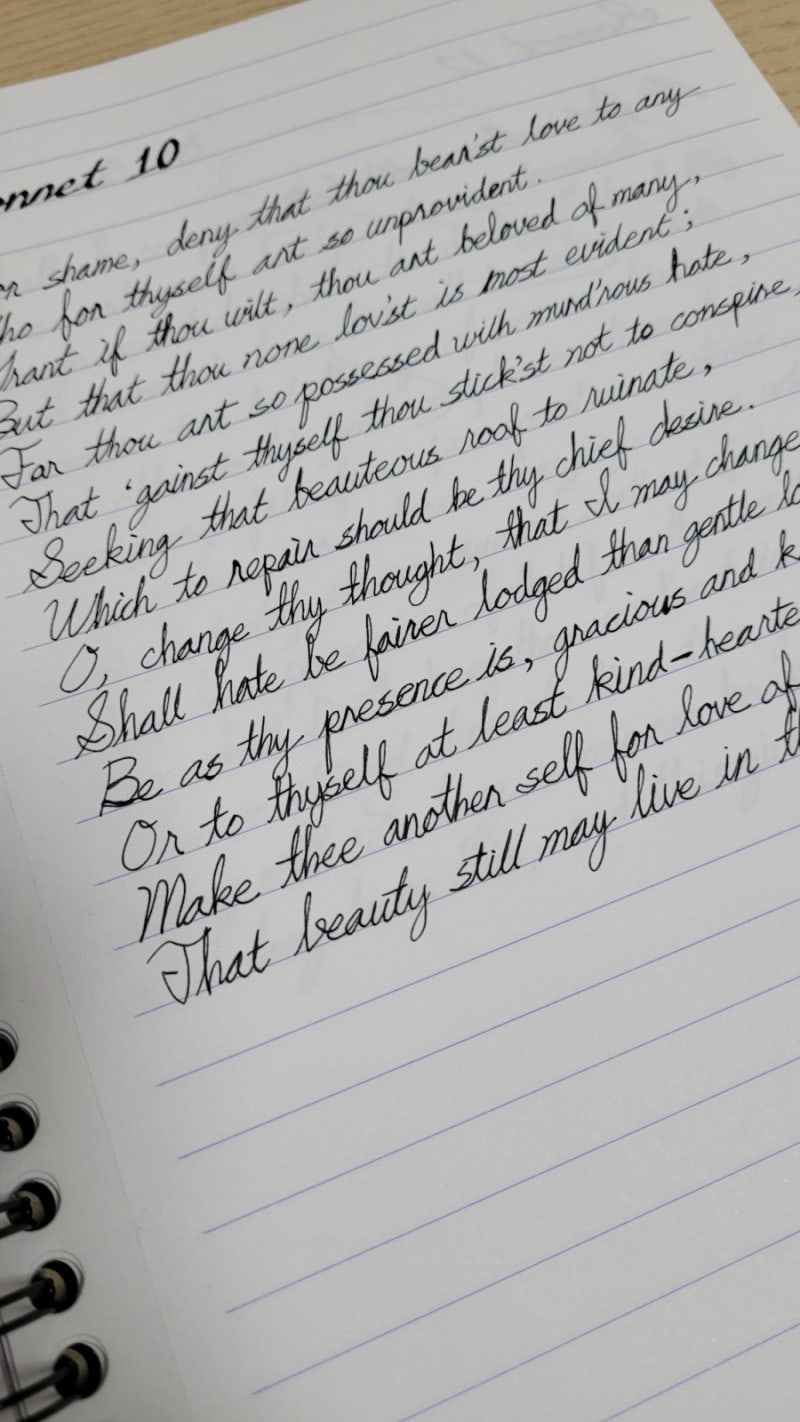 onnet 10
or shame, deny that thou bear'st love to any
ho for thyself art so unprovident.
rant if thou wilt, thou art beloved of many,
But that thou none lov'st is most evident;
For thou art so possessed with murd'rous hate,
That 'gainst thyself thou stick'st not to conspire,
Seeking that beauteous roof to ruinate,
Which to repair should be thy chief desire.
O, change thy thought, that I may change
Shall hate be fairer lodged than gentle lo
Be as thy presence is, gracious and k
Or to thyself at least kind-hearte
Make thee another self for love of
That beauty still may live in th